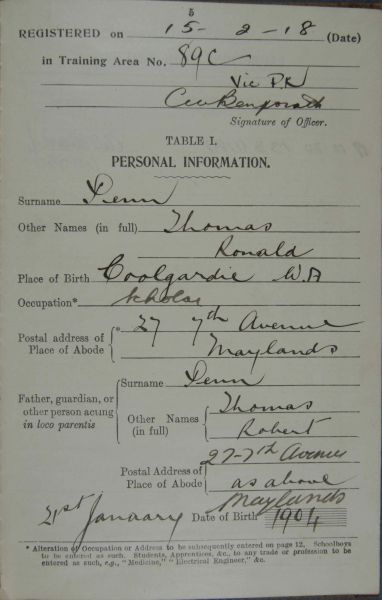 5
REGISTERED on 15-2-18 (Date)
in Training Area No. 89C
Vic P.K
Signature of Officer.
TABLE I.
PERSONAL INFORMATION.
Surname Penn
Other Names (in full) Thomas
Ronald
Place of Birth Coolgardie W.A
Occupation* Scholar
Postal address of Place of Abode * 27 7th Avenue
Maylands
Father, guardian, or other person acting in loco parentis
Surname Penn
Other Names (in full) Thomas
Robert
Postal Address of Place of Abode 27-7th Avenue
as above
Maylands
21st January Date of Birth 1904
* Alteration of Occupation or Address to be subsequently entered on page 12. Schoolboys
to be entered as such. Students, Apprentices, &c., to any trade or profession to be
entered as such, e.g., "Medicine," "Electrical Engineer," &c.